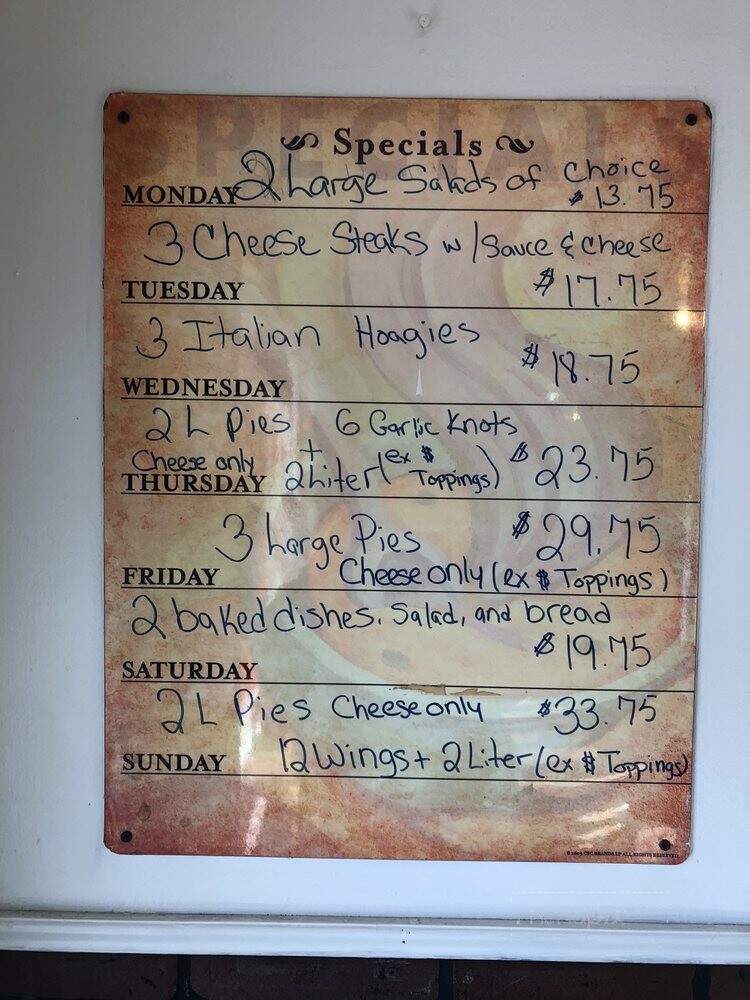 SPECIALS
Specials
2 Large Salads of Choice
MONDAY $13.75
3 Cheese Steaks w/Sauce & Cheese
TUESDAY $17.75
3 Italian Hoagies
$18.75
WEDNESDAY
2 L Pies 6 Garlic Knots
Cheese only + 2 Liter (ex $ Toppings) $23.75
THURSDAY
3 Large Pies $29.75
FRIDAY Cheese only (ex $ Toppings)
2 baked dishes, Salad, and bread
$19.75
SATURDAY
2 L Pies Cheese only $33.75
SUNDAY 12 Wings + 2 Liter (ex $ Toppings)
© 2009 CSC BRANDS LP ALL RIGHTS RESERVED